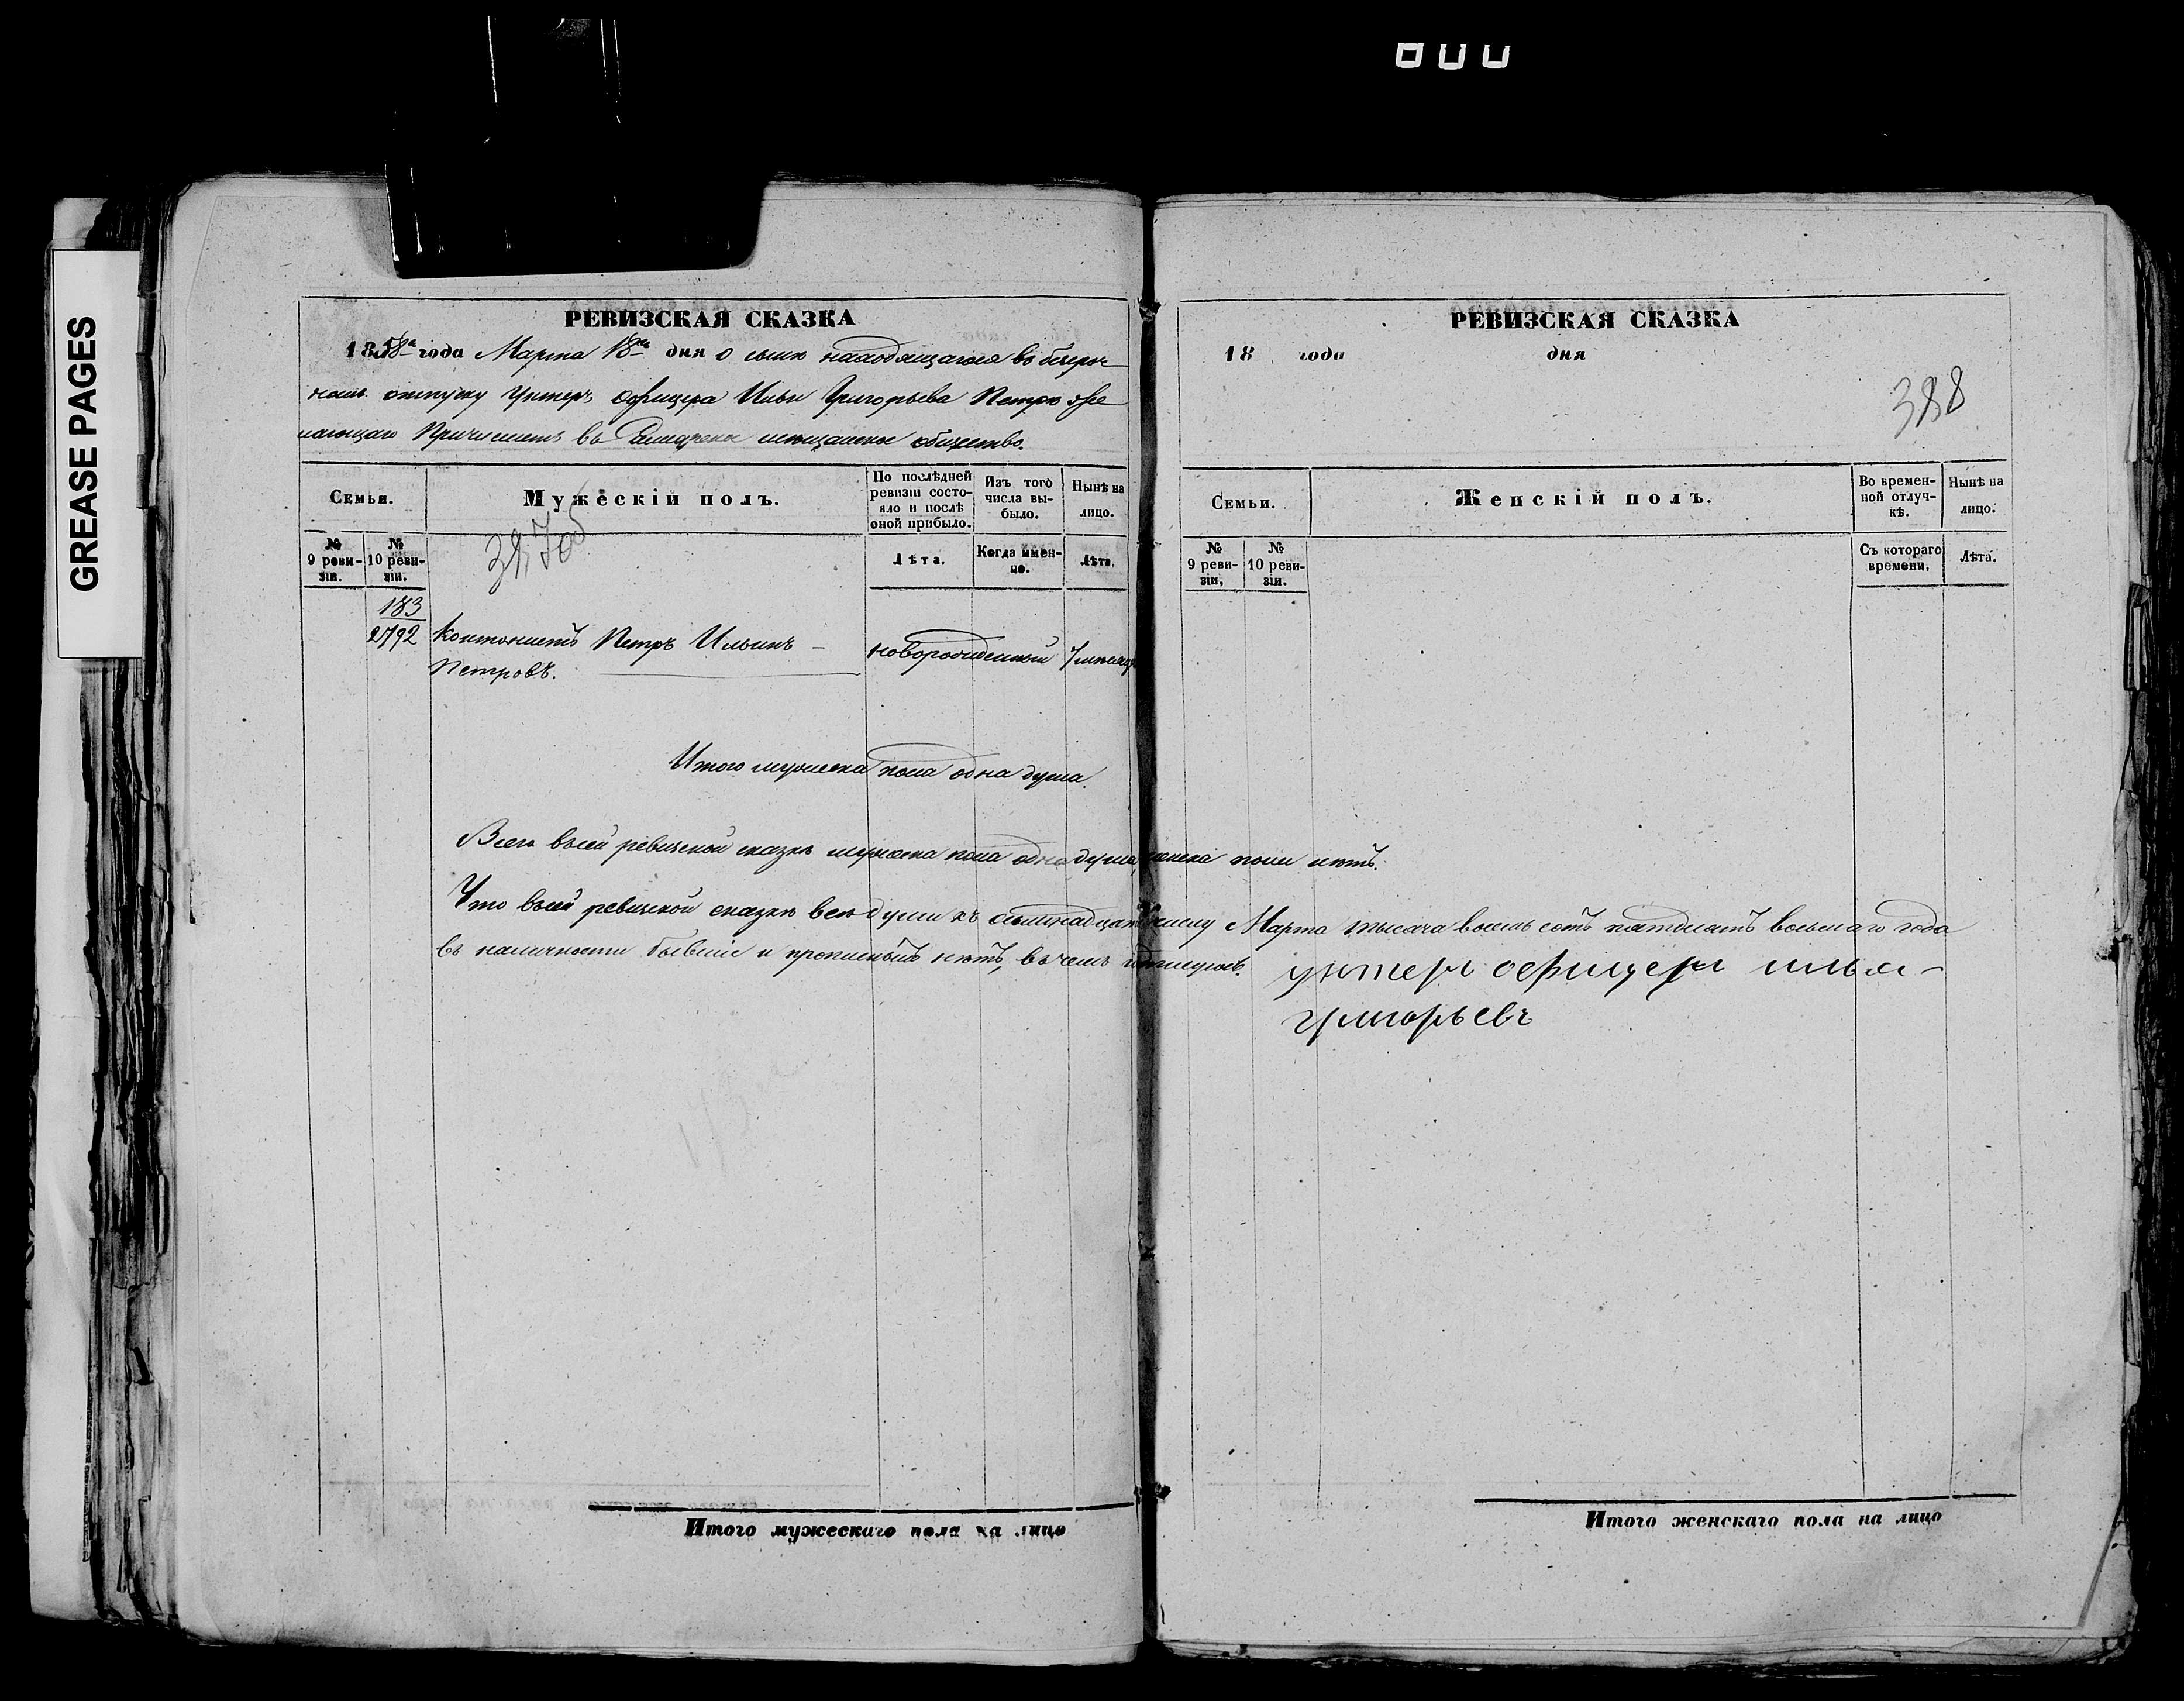 GREASE PAGES
РЕВИЗСКАЯ СКАЗКА
1858го года Марта 18го дня о сынѣ находящагося въ безсроч
номъ отпуску Унтеръ Офицера Ильи Григорьева Петрѣ же
лающаго въ мѣщанское общество.
Семьи.
Мужескій полъ.
По послѣдней ревизіи состояло и послѣ оной прибыло.
Изъ того числа выбыло.
Нынѣ на лицо.
№ 9 ревизіи.
№ 10 ревизіи.
Лѣта.
Когда именно.
Лѣта.
183
2792
Контонистъ Петръ Ильинъ –
Петровъ.
новорожденный
7 мѣсяц
Итого мужеска пола одна душа.
Всего въсей ревизской сказкѣ мужеска пола одна душа, женска пола нѣтъ.
Что въсей ревизской сказкѣ всѣ души къ числу Марта тысяча восемь сотъ пятдесятъ восьмаго года
въ наличности бывшіе и прописныхъ нѣтъ, въ чемъ
унтеръ офицеръ илья –
григорьевъ
Итого мужескаго пола на лицо
РЕВИЗСКАЯ СКАЗКА
18 года дня
388
Семьи.
Женскій полъ.
Во временной отлучкѣ.
Нынѣ на лицо.
№ 9 ревизіи.
№ 10 ревизіи.
Съ котораго времени.
Лѣта.
Итого женскаго пола на лицо